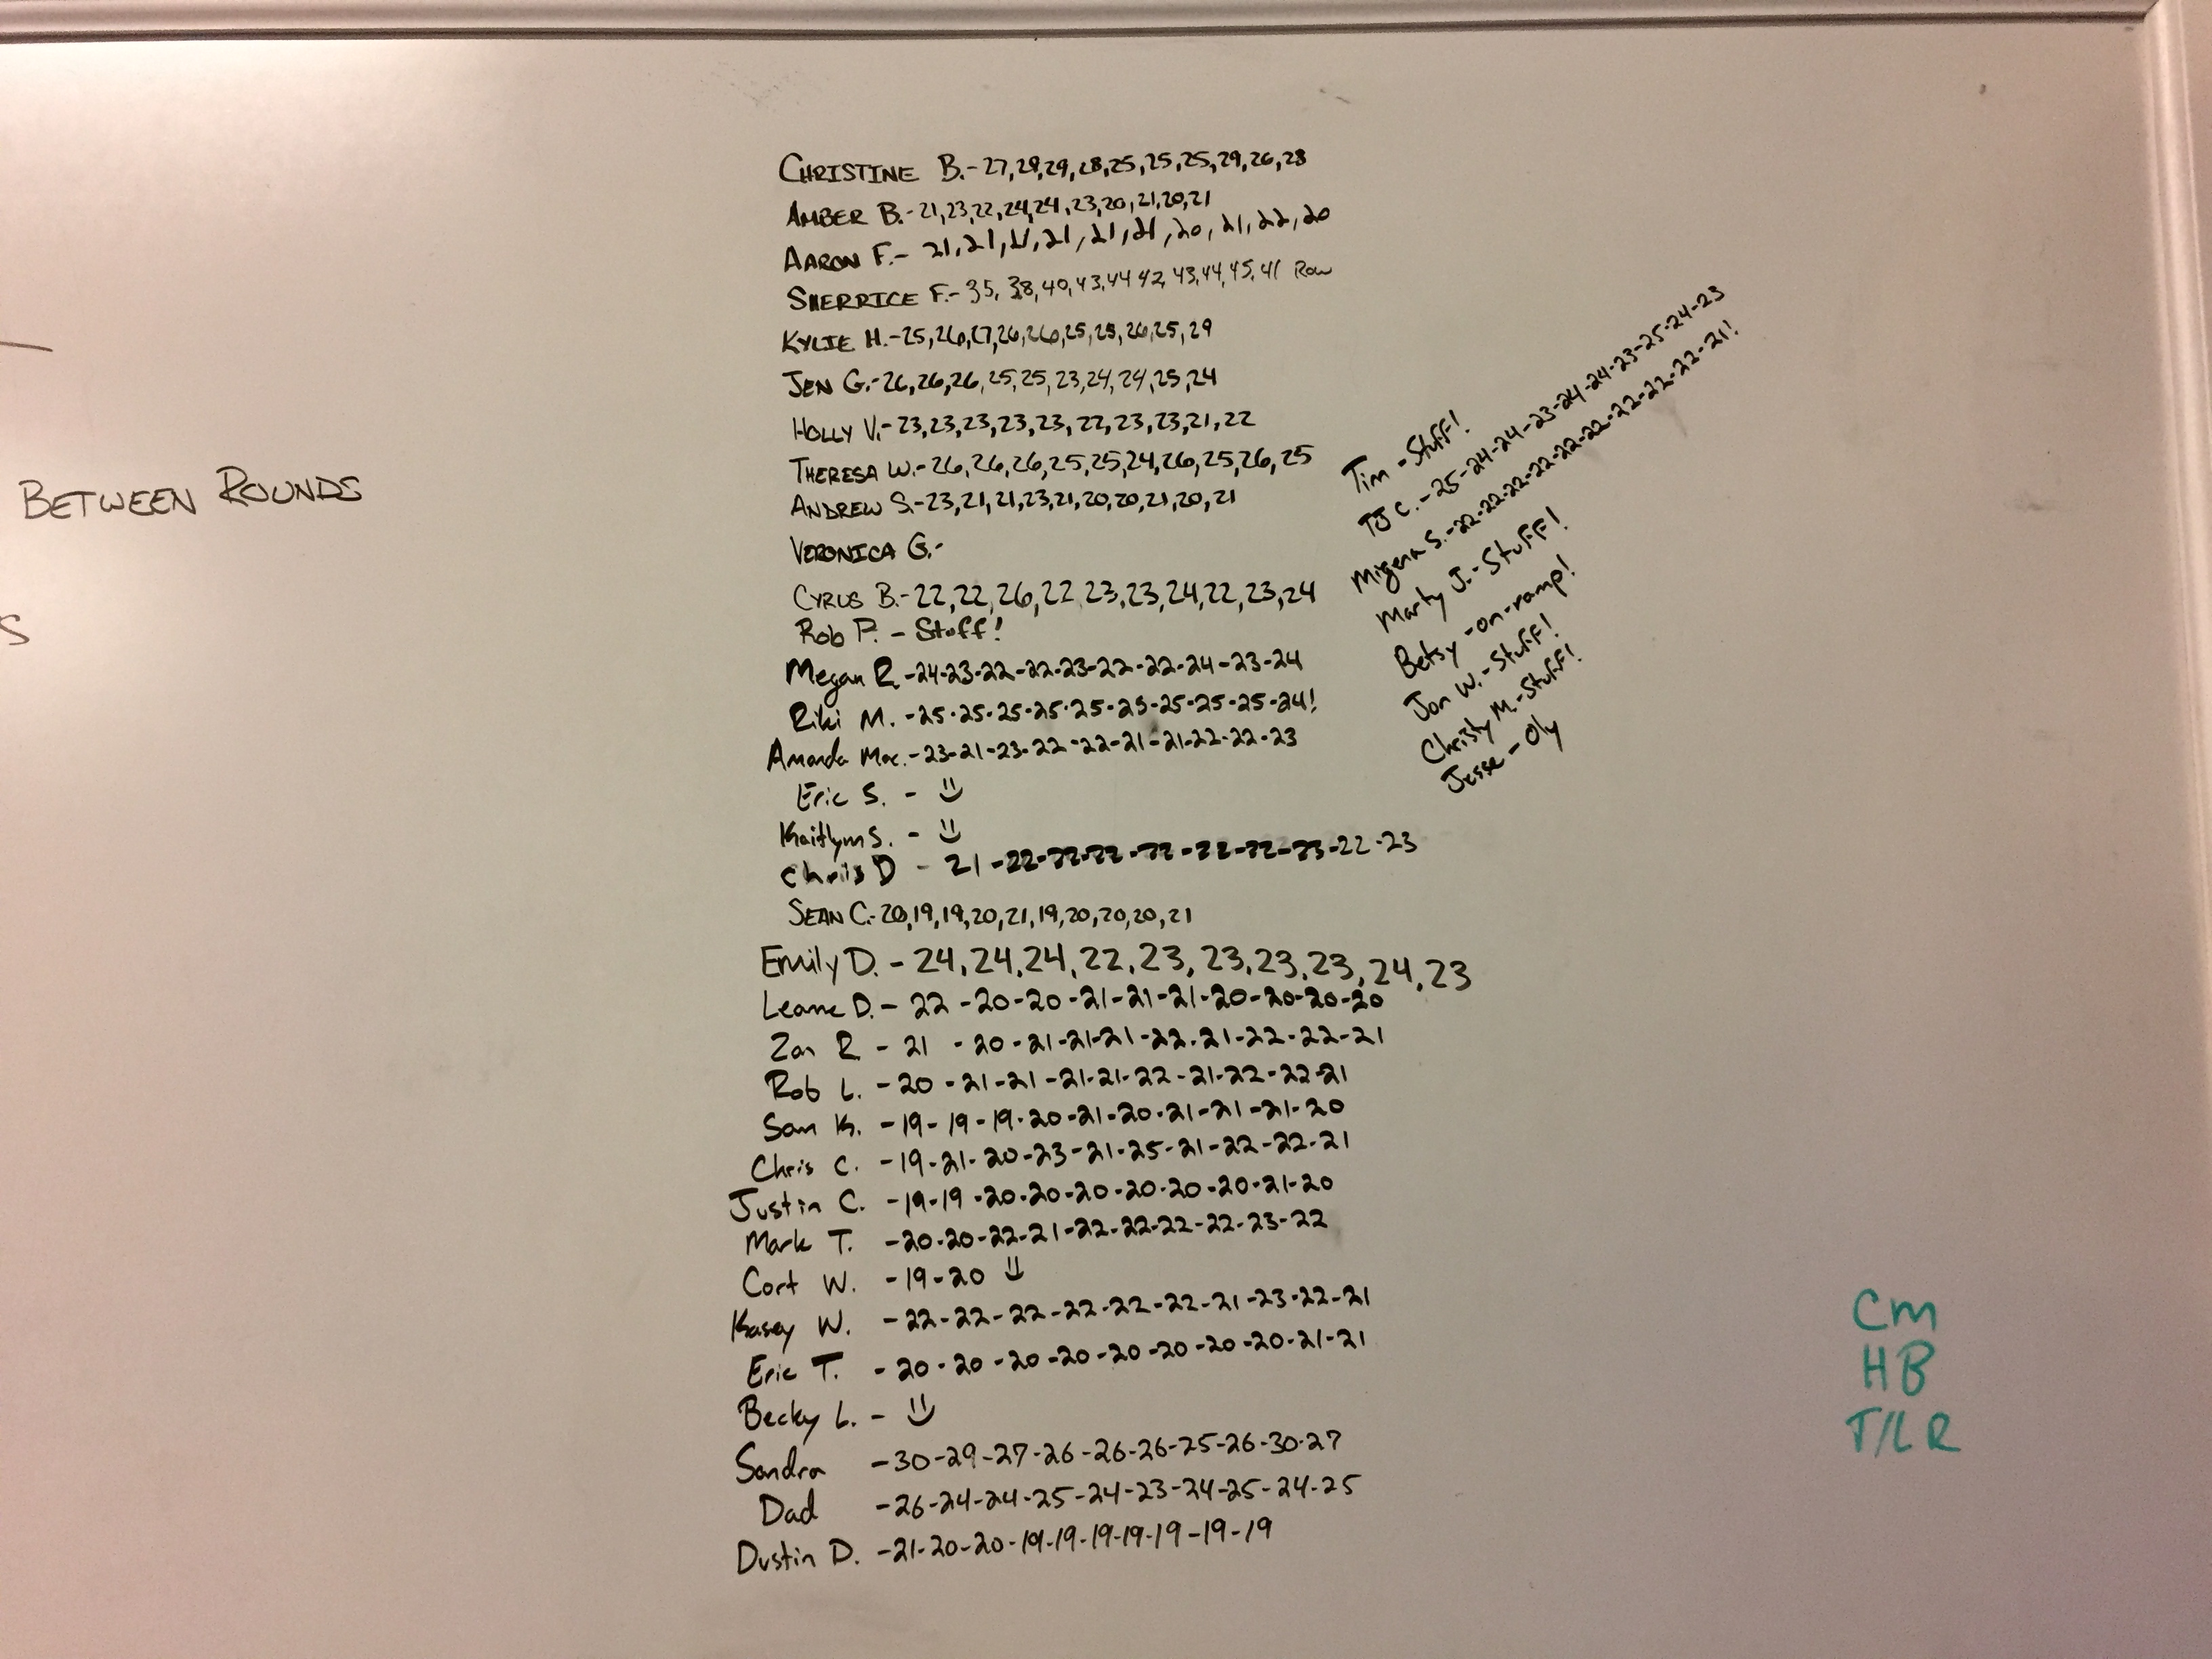 BETWEEN ROUNDS
S
CHRISTINE B.-27,29,29,28,25,25,25,29,26,28
AMBER B.-21,23,22,24,24,23,20,21,20,21
AARON F.- 21,21,21,21,21,21,20,21,22,20
SHERRICE F.-35,38,40,43,44 42,43,44,45,41 Row
KYLIE H.-25,26,27,26,26,25,25,26,25,29
JEN G.-26,26,26,25,25,23,24,24,25,24
HOLLY V.-23,23,23,23,23,22,23,23,21,22
THERESA W.-26,26,26,25,25,24,26,25,26,25
ANDREW S.-23,21,21,23,21,20,20,21,20,21
VERONICA G.-
CYRUS B.-22,22,26,22,23,23,24,22,23,24
Rob P. - Stuff!
Megan R -24-23-22-22-23-22-22-24-23-24
Riki M. -25-25-25-25-25-25-25-25-25-24!
Amanda Mac.-23-21-23-22-22-21-21-22-22-23
Eric S. -
Kaitlyn S. -
Chris D - 21-22-22-22-22-22-22-23-22-23
SEAN C.-20,19,19,20,21,19,20,20,20,21
Emily D. - 24,24,24,22,23,23,23,23,24,23
Leane D. - 22-20-20-21-21-21-20-20-20-20
Zan R - 21-20-21-21-21-22-21-22-22-21
Rob L. -20-21-21-21-21-22-21-22-22-21
Sam K. -19-19-19-20-21-20-21-21-21-20
Chris C. -19-21-20-23-21-25-21-22-22-21
Justin C. -19-19-20-20-20-20-20-20-21-20
Mark T. -20-20-22-21-22-22-22-22-23-22
Cort W. -19-20
Kasey W. -22-22-22-22-22-22-21-23-22-21
Eric T. -20-20-20-20-20-20-20-20-21-21
Becky L. -
Sandra -30-29-27-26-26-26-25-26-30-27
Dad -26-24-24-25-24-23-24-25-24-25
Dustin D. -21-20-20-19-19-19-19-19-19-19
Tim - Stuff!
TJ C. - 25-24-24-23-24-24-23-25-24-23
Migena S. -22-22-22-22-22-22-22-22-22-21!
Marty J. - Stuff!
Betsy - on-ramp!
Jon W. - Stuff!
Christy M. - Stuff!
Jesse - Oly
CM
HB
T/LR